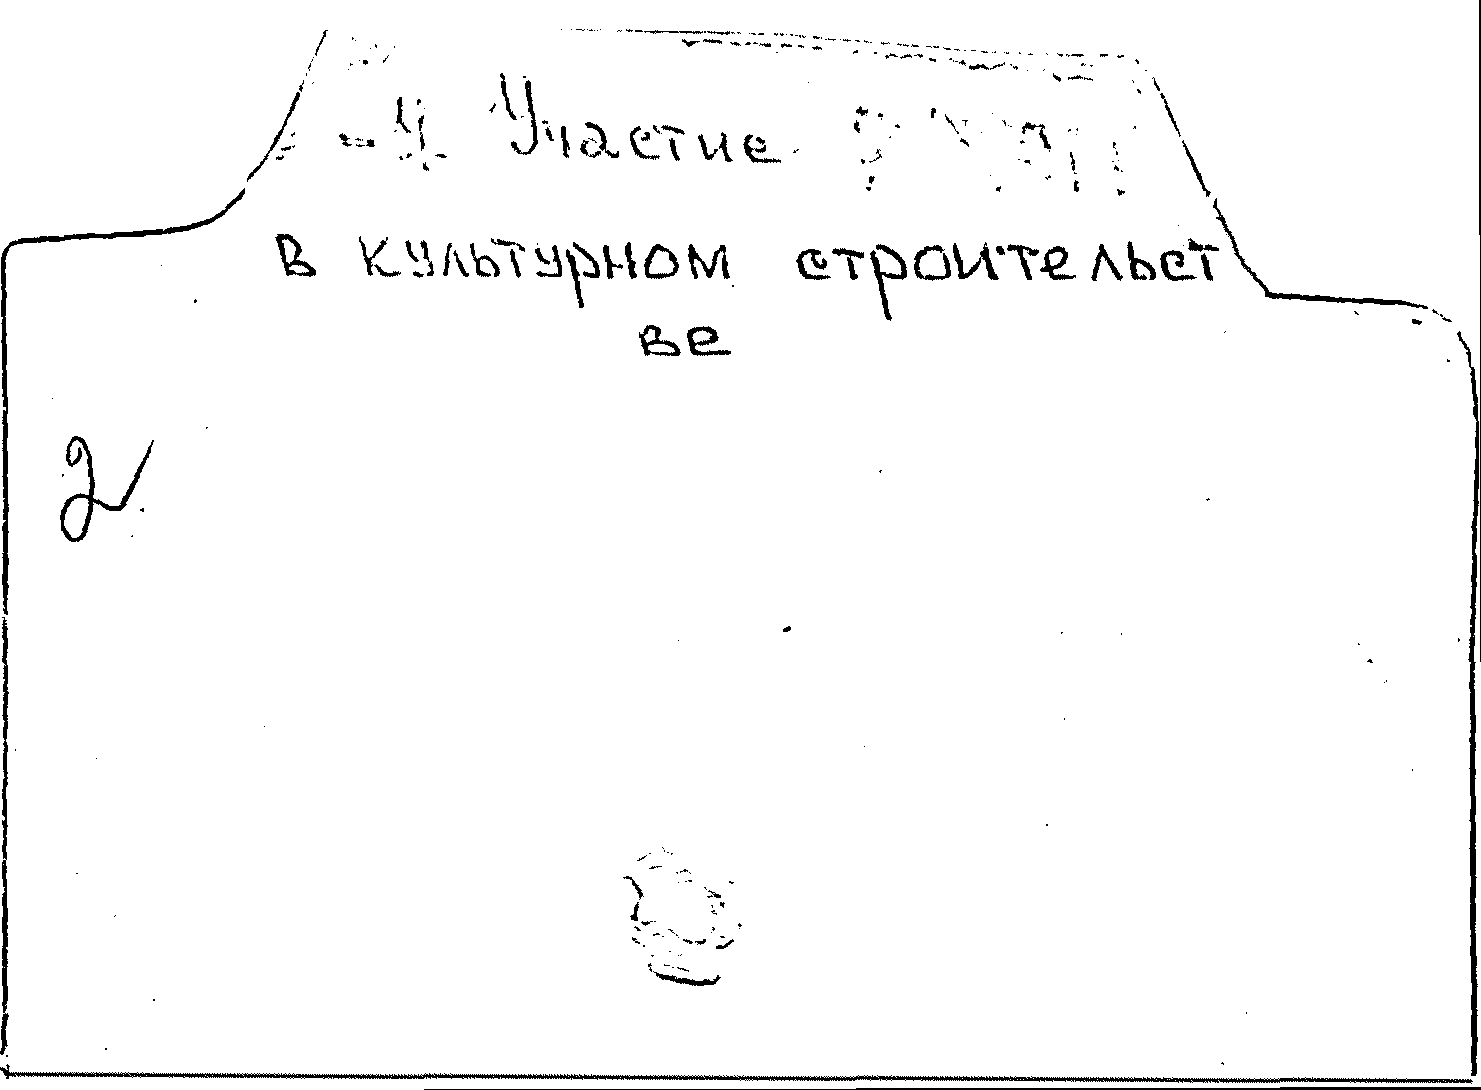 Участие
в культурном строительст
ве
2